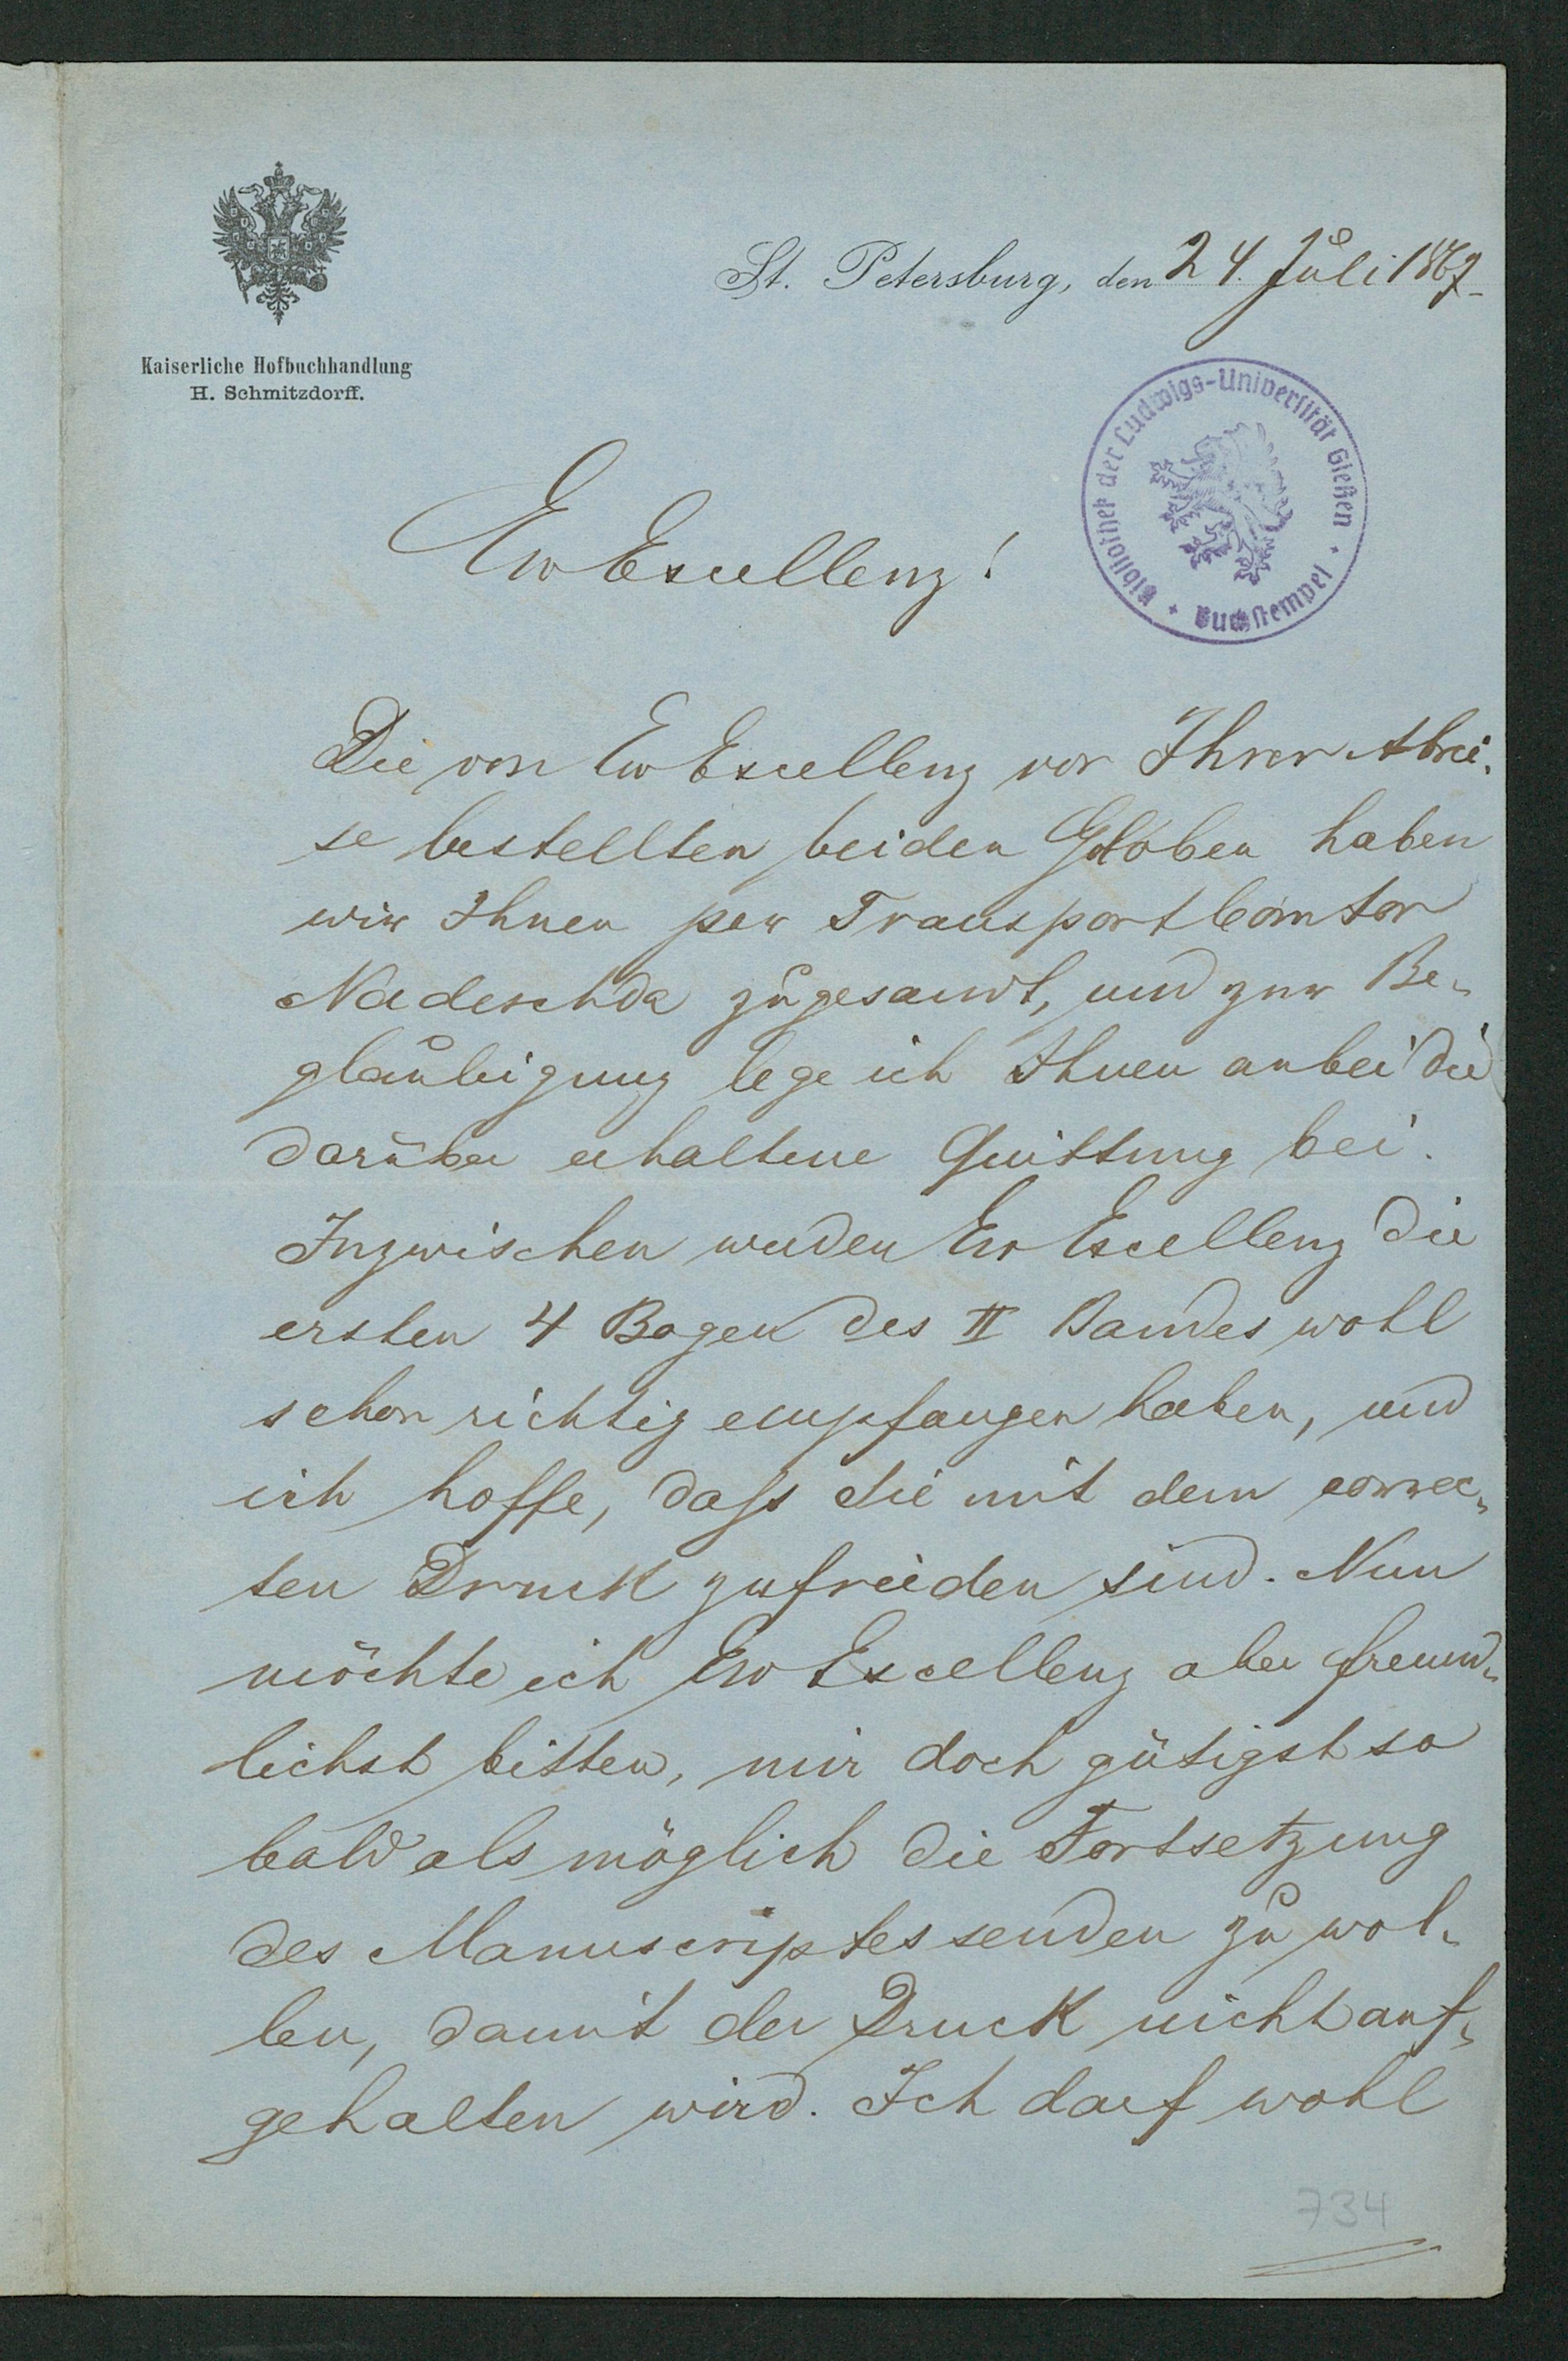 Kaiserliche Hofbuchhandlung
H. Schmitzdorff.
St. Petersburg, den 24. Juli 1867
Bibliothek der Ludwigs-Universität Gießen · Buchstempel ·
Ew Excellenz!
Die von Ew Excellenz vor Ihrer Abrei-
se bestellten beiden Globen haben
wir Ihnen per Transportcomtor
Nadeschda zugesandt, und zur Be-
glaubigung lege ich Ihnen anbei die
darüber erhaltene Quittung bei.
Inzwischen werden Ew Excellenz die
ersten 4 Bogen des II Bandes wohl
schon richtig empfangen haben, und
ich hoffe, dass Sie mit dem correc-
ten Druck zufrieden sind. Nun
möchte ich Ew Excellenz aber freund-
lichst bitten, mir doch gütigst so
bald als möglich die Fortsetzung
des Manuscriptes senden zu wol-
len, damit der Druck nicht auf-
gehalten wird. Ich darf wohl
734